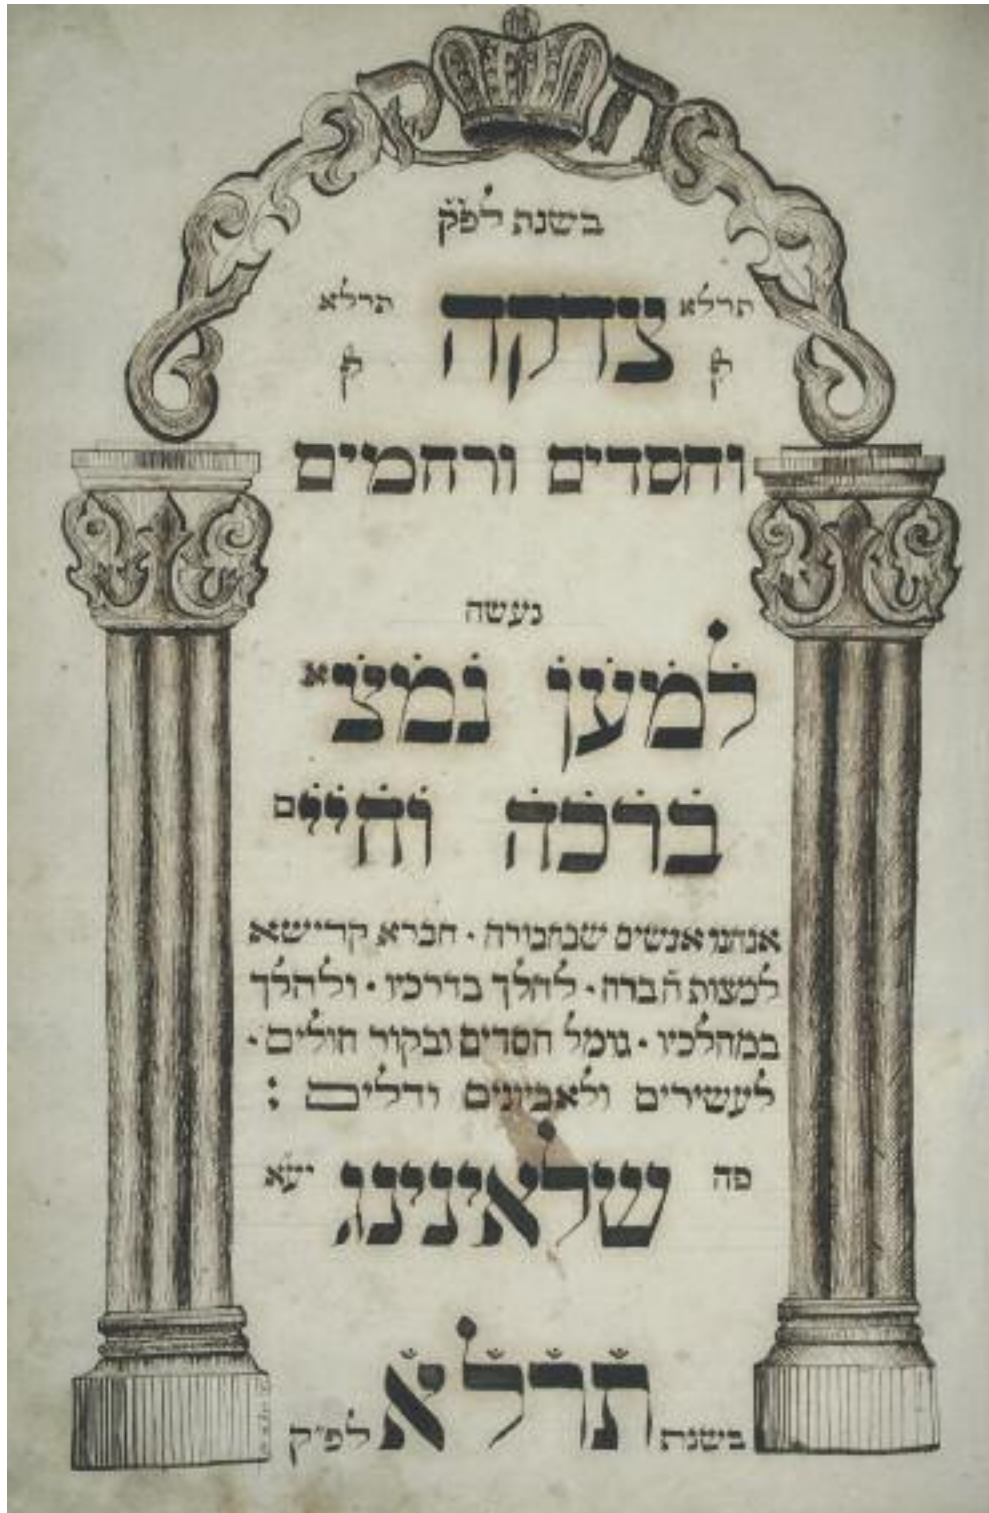 ק ת
בשנת לפ״ק
תרלא צדקה תרלא
וחסדים ורחמים
נעשה
למען נמצא
ברכה וחיים
אנחנו אנשים שבחבורה · חברא קדישא
למצות חברה · להלך בדרכיו · ולהלך
במהלכיו · גומל חסדים ובקור חולים ·
לעשירים ולאביונים ודלים :
פה שלאינינג יע״א
בשנת תרלא לפ״ק